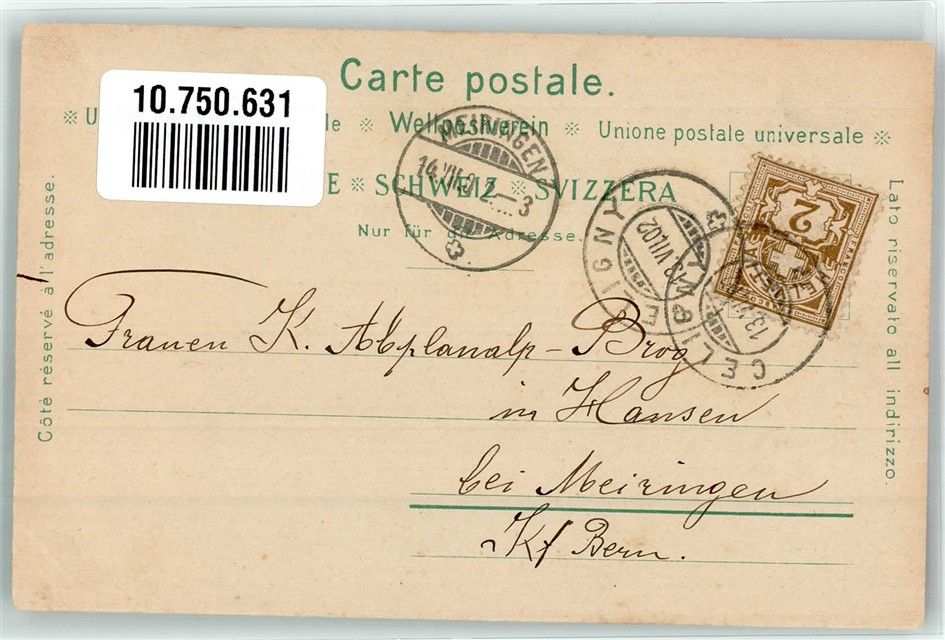 Carte postale.
10.750.631
Weltpostverein ※ Unione postale universale ※
※ SCHWEIZ ※ SVIZZERA
Nur für die Adresse.
Côté réservé à l'adresse.
Lato riservato all indirizzo.
MEIRINGEN
14.VII.02.–3
CELIGNY
13.VII.02
CELIGNY
2
FRANCO
HELVETIA
Frauen K. Abplanalp-Brog
in Hausen
bei Meiringen
Kt Bern.